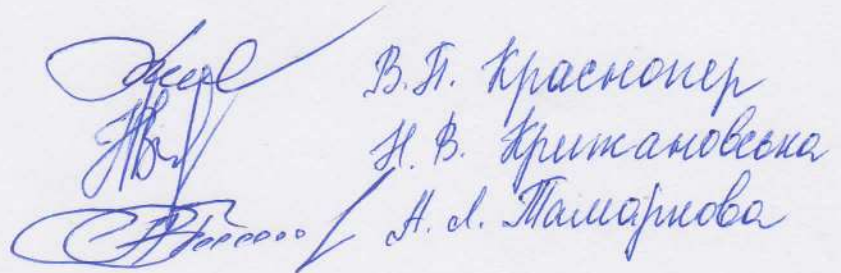 В.П. Краснопер
Н.В. Крижановська
А.Л. Тамаркова